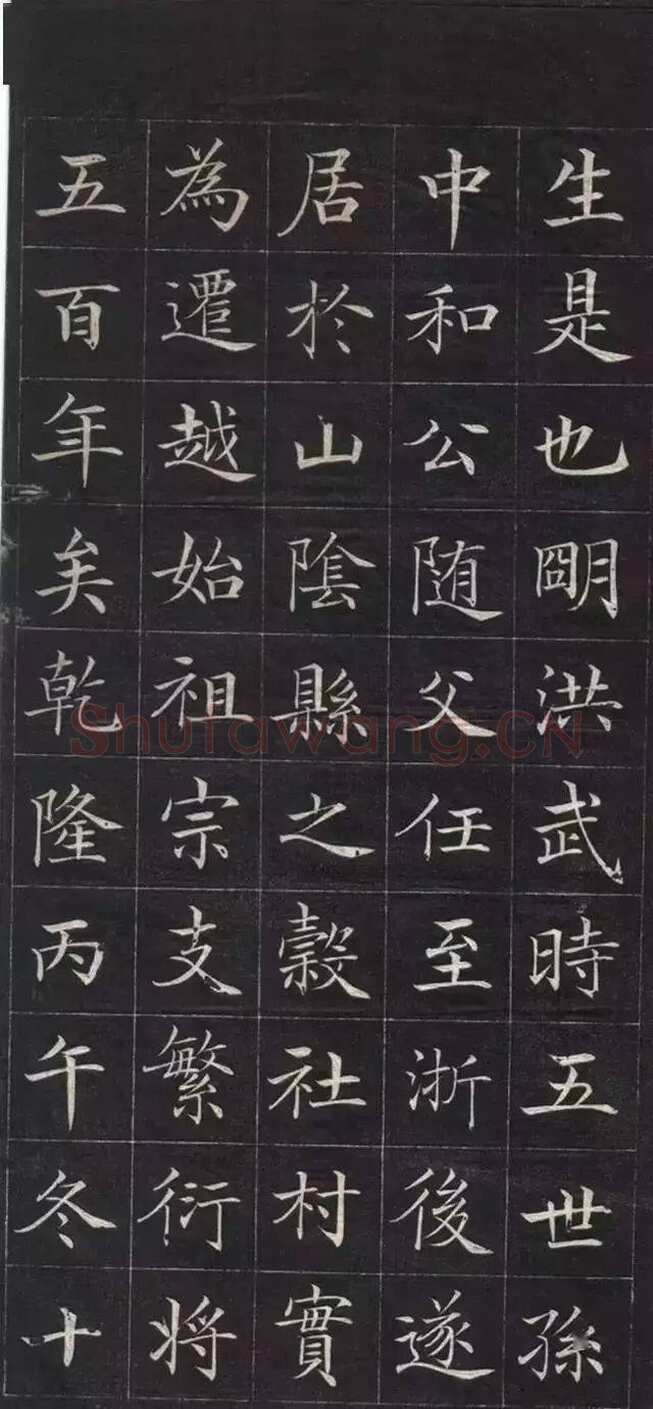 生是也明洪武時五世孫
中和公随父任至浙後遂
居於山陰縣之穀社村實
為遷越始祖宗支繁衍将
五百年矣乾隆丙午冬十
Shufawang.CN